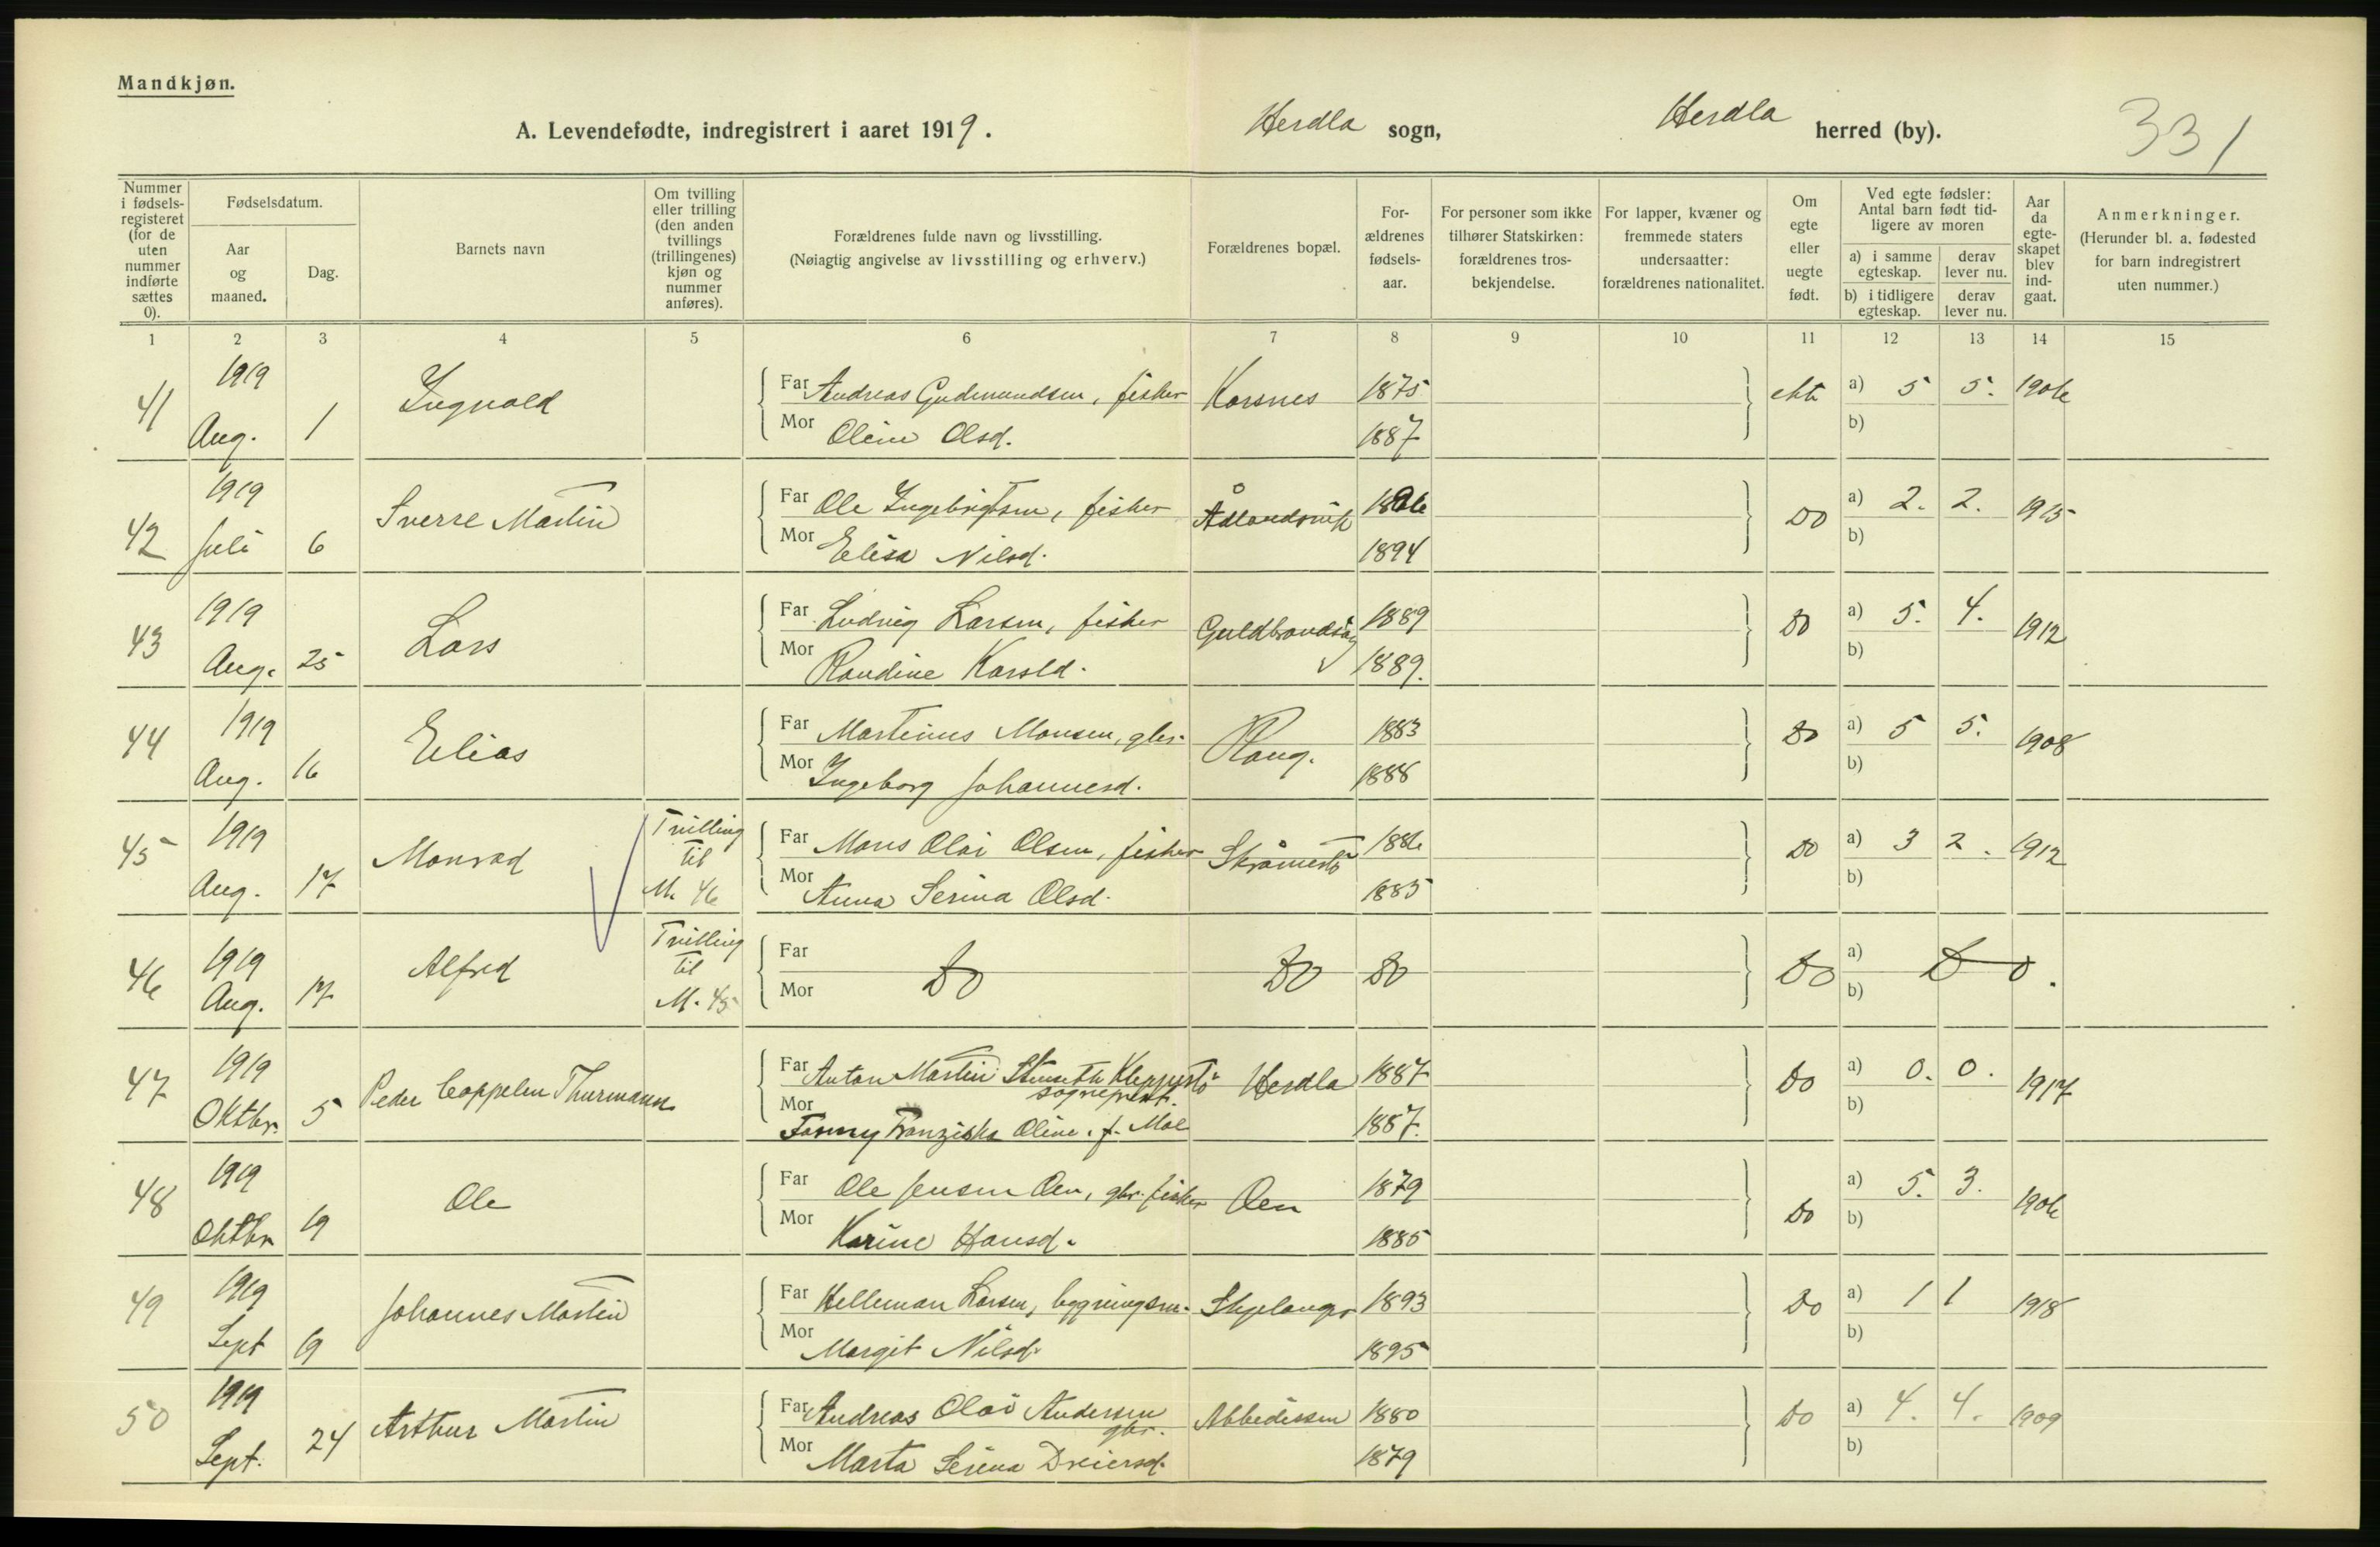 Mandkjøn.
A. Levendefødte, indregistrert i aaret 1919. Herdla sogn, Herdla herred (by). 331
Nummer i fødsels-registeret (for de uten nummer indførte sættes 0).
Fødselsdatum.
Aar og maaned.
Dag.
Barnets navn
Om tvilling eller trilling (den anden tvillings (trillingenes) kjøn og nummer anføres).
Forældrenes fulde navn og livsstilling.
(Nøiagtig angivelse av livsstilling og erhverv.)
Forældrenes bopæl.
For-ældrenes fødsels-aar.
For personer som ikke tilhører Statskirken: forældrenes tros-bekjendelse.
For lapper, kvæner og fremmede staters undersaatter: forældrenes nationalitet.
Om egte eller uegte født.
Ved egte fødsler: Antal barn født tid-ligere av moren
a) i samme egteskap. derav lever nu.
b) i tidligere egteskap. derav lever nu.
Aar da egte-skapet blev ind-gaat.
Anmerkninger.
(Herunder bl. a. fødested for barn indregistrert uten nummer.)
1 2 3 4 5 6 7 8 9 10 11 12 13 14 15
41 1919 Aug. 1 Ingvald Far Andreas Gudmundsen, fisker Korsnes 1875 ekte a) 5 5. 1906
Mor Oline Olsd. 1887 b)
42 1919 Juli 6 Sverre Martin Far Ole Ingebrigtsen, fisker Ådlandsvik Do a) 2. 2. 1915
Mor Elisa Nilsd. 1894 b)
43 1919 Aug. 25 Lars Far Ludvig Larsen, fisker 1889 Do a) 5. 4. 1912
Mor Randine Karsld. 1889. b)
44 1919 Aug. 16 Elias Far Martinus Monsen, gbr. Rong. 1883 Do a) 5 5. 1908
Mor Ingeborg Johannesd. 1888 b)
45 1919 Aug. 17 Monrad Tvilling til M. 46 Far Mons Olai Olsen, fisker Skråmestø 1886 Do a) 3 2. 1912
Mor Anna Serina Olsd. 1885 b)
46 1919 Aug. 17 Alfred Tvilling til M. 45 Far Do Do Do Do a) Do.
Mor b)
47 1919 Oktbr. 5 Peder Cappelen Thurmann Far Anton Martin Kleppestø sogneprest. Herdla 1887 Do a) 0. 0. 1917
Mor Fanny Franziska Oline. f. Moe 1887. b)
48 1919 Oktbr 19 Ole Far Ole Jensen Oen, gbr. fisker Oen 1879 Do a) 5. 3. 1906
Mor Karine Hansd. 1885 b)
49 1919 Sept 19 Johannes Martin Far Helleman Larsen, bygningsm. Skjelanger 1893 Do a) 1 1 1918
Mor Margit Nilsd. 1895 b)
50 1919 Sept. 24 Arthur Martin Far Andreas Olai Andersen gbr. Abbedissen 1880 Do a) 4. 4. 1909
Mor Marta Serina Dreiersd. 1879 b)